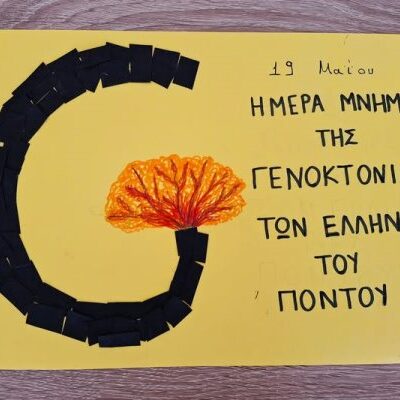 19 Μαΐου
ΗΜΕΡΑ ΜΝΗΜ
ΤΗΣ
ΓΕΝΟΚΤΟΝΙ
ΤΩΝ ΕΛΛΗΝ
ΤΟΥ
ΠΟΝΤΟΥ